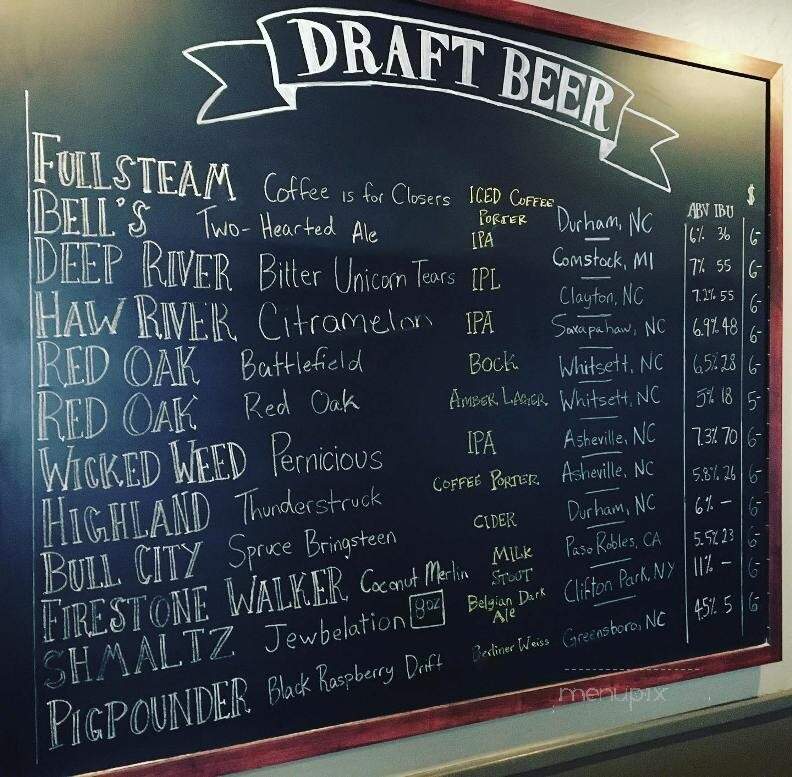 DRAFT BEER
ABV IBU $
FULLSTEAM Coffee is for Closers ICED COFFEE PORTER Durham, NC 6% 36 6-
BELL'S Two-Hearted Ale IPA Comstock, MI 7% 55 6-
DEEP RIVER Bitter Unicorn Tears IPL Clayton, NC 7.2% 55 6-
HAW RIVER Citramelon IPA Saxapahaw, NC 6.9% 48 6-
RED OAK Battlefield BOCK Whitsett, NC 6.5% 28 6-
RED OAK Red Oak AMBER LAGER Whitsett, NC 5% 18 5-
WICKED WEED Pernicious IPA Asheville, NC 7.3% 70 6-
HIGHLAND Thunderstruck COFFEE PORTER Asheville, NC 5.8% 26 6-
BULL CITY Spruce Bringsteen CIDER Durham, NC 6% - 6-
FIRESTONE WALKER Coconut Merlin MILK STOUT Paso Robles, CA 5.5% 23 6-
SHMALTZ Jewbelation 8oz Belgian Dark Ale Clifton Park, NY 11% - 6-
PIGPOUNDER Black Raspberry Drift Berliner Weiss Greensboro, NC 4.5% 5 6-
menupix